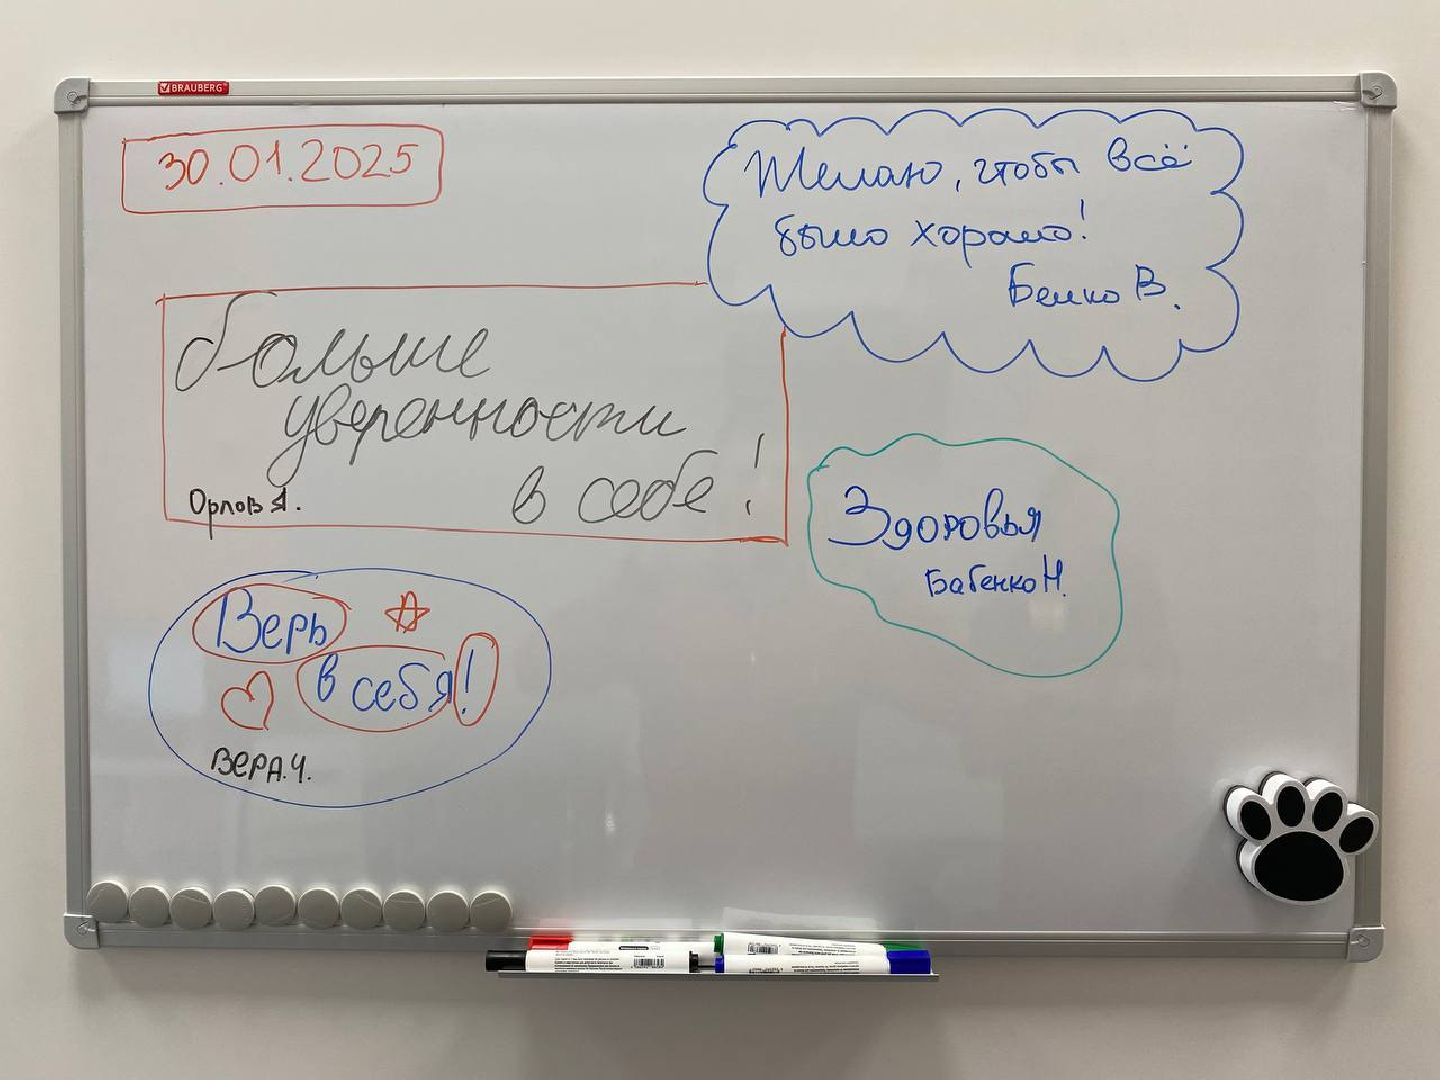 BRAUBERG
30.01.2025
Желаю, чтобы всё
было хорошо!
Белко В.
больше
уверенности
в себе!
Орлов Я.
Здоровья
Бабенко Н.
Верь
в себя!
ВЕРА.Ч.